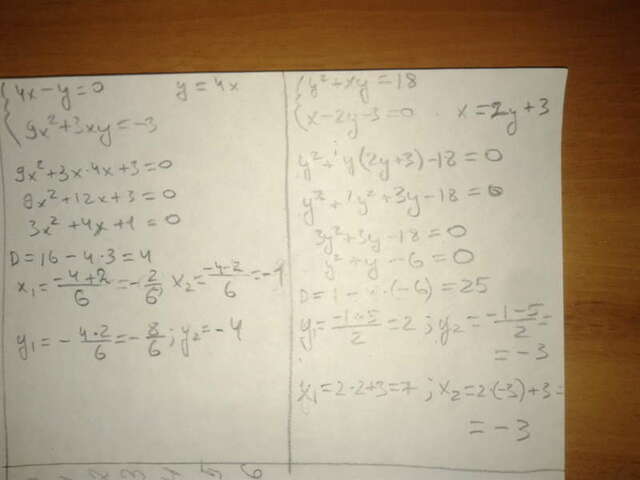 4x - y = 0 y = 4x
9x² + 3xy = -3
9x² + 3x·4x + 3 = 0
9x² + 12x + 3 = 0
3x² + 4x + 1 = 0
D = 16 - 4·3 = 4
x₁ = (-4+2)/6 = -2/6; x₂ = (-4-2)/6 = -1
y₁ = -(4·2)/6 = -8/6; y₂ = -4
y² + xy = 18
x - 2y - 3 = 0. x = 2y + 3
y² + y(2y+3) - 18 = 0
y² + 2y² + 3y - 18 = 0
3y² + 3y - 18 = 0
y² + y - 6 = 0
D = 1 - ·(-6) = 25
y₁ = (-1+5)/2 = 2; y₂ = (-1-5)/2 =
= -3
x₁ = 2·2+3 = 7; x₂ = 2·(-3)+3 =
= -3
2 3 4 5 6